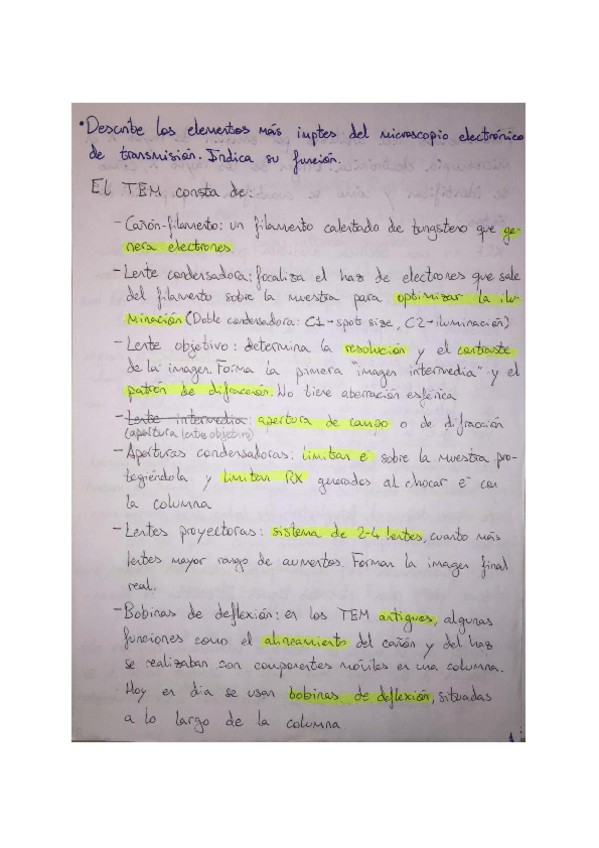 • Describe los elementos más imptes del microscopio electrónico
de transmisión. Indica su función.
El TEM consta de:
- Cañón-filamento: un filamento calentado de tungsteno que ge-
nera electrones
- Lente condensadora: focaliza el haz de electrones que sale
del filamento sobre la muestra para optimizar la ilu-
minación (Doble condensadora: C1→spots size, C2→iluminación)
- Lente objetivo: determina la resolución y el contraste
de la imagen. Forma la primera "imagen intermedia" y el
patrón de difracción. No tiene aberración esférica
- Lente intermedia: apertura de campo o de difracción
(apertura lente objetivo)
- Aperturas condensadoras: limitan e⁻ sobre la muestra pro-
tegiéndola y limitan RX generados al chocar e⁻ con
la columna
- Lentes proyectoras: sistema de 2-4 lentes, cuanto más
lentes mayor rango de aumentos. Forman la imagen final
real.
- Bobinas de deflexión: en los TEM antiguos, algunas
funciones como el alineamiento del cañón y del haz
se realizaban con componentes móviles en una columna.
Hoy en día se usan bobinas de deflexión, situadas
a lo largo de la columna